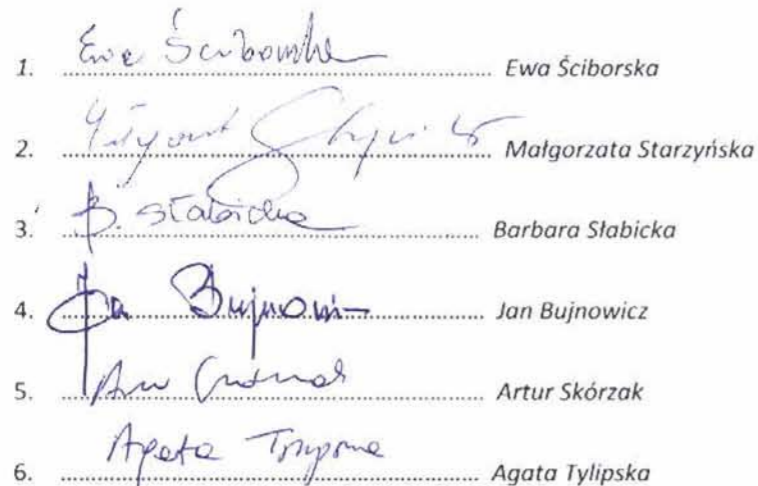 Ewa Ściborska
1. .......................................................... Ewa Ściborska
2. .......................................................... Małgorzata Starzyńska
B. Słabicka
3. .......................................................... Barbara Słabicka
Jan
4. .......................................................... Jan Bujnowicz
5. .......................................................... Artur Skórzak
Agata
6. .......................................................... Agata Tylipska